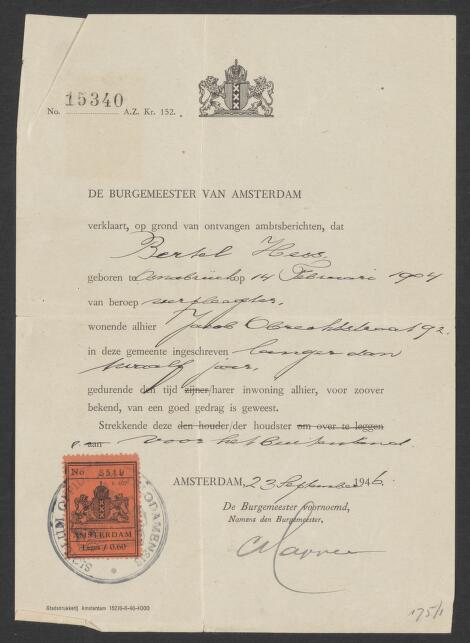 No. 15340 A.Z. Kr. 152.
DE BURGEMEESTER VAN AMSTERDAM
verklaart, op grond van ontvangen ambtsberichten, dat
Bertel Hess,
geboren te Innsbruck op 14 Februari 1904
van beroep verpleegster,
wonende alhier Jacob Obrechtstraat 92.
in deze gemeente ingeschreven langer dan
twaalf jaar,
gedurende den tijd zijner/harer inwoning alhier, voor zoover
bekend, van een goed gedrag is geweest.
Strekkende deze den houder/der houdster om over te leggen
aan voor het Buitenland.
AMSTERDAM, 23 September 1946.
De Burgemeester voornoemd,
Namens den Burgemeester,
No 5540
AMSTERDAM
Leges f 0.60
Stadsdrukkerij Amsterdam 15278-6-46-4000
175/1